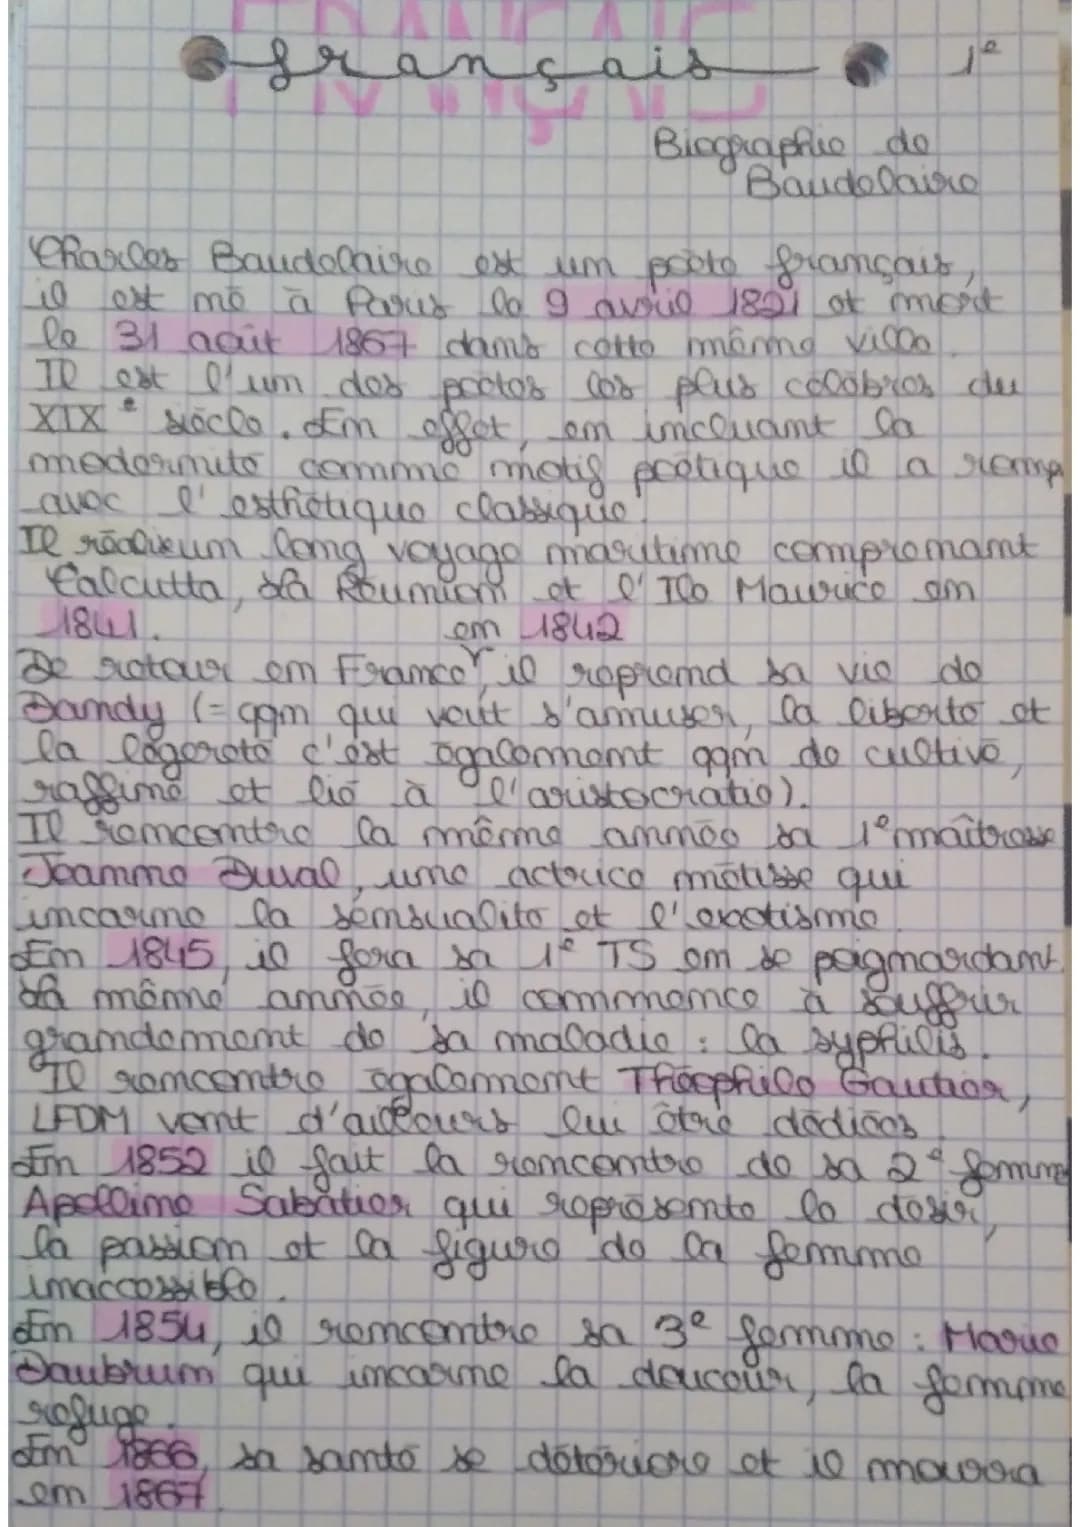 FRANÇAIS
français 1e
Biographie de
Baudelaire
Charles Baudelaire est un poète français,
il est né à Paris le 9 avril 1821 et meurt
le 31 août 1867 dans cette même ville.
Il est l'un des poètes les plus célèbres du
XIXe siècle. En effet, en incluant la
modernité comme motif poétique il a rompu
avec l'esthétique classique.
Il réalise un long voyage maritime comprenant
Calcutta, la Réunion et l'Ile Maurice en
1841. en 1842
De retour en France, il reprend sa vie de
Dandy (= qqn qui veut s'amuser, la liberté et
la légereté c'est également qqn de cultivé,
raffiné et lié à l'aristocratie).
Il rencontre la même année sa 1e maîtresse
Jeanne Duval, une actrice métisse qui
incarne la sensualité et l'exotisme.
En 1845, il fera sa 1e TS en se poignardant.
La même année, il commence à souffrir
grandement de sa maladie : la syphilis.
Il rencontre également Théophile Gautier,
LFDM vont d'ailleurs lui être dédiées
En 1852 il fait la rencontre de sa 2e femme
Apolline Sabatier qui représente le désir,
la passion et la figure de la femme
inaccessible.
En 1854, il rencontre sa 3e femme : Marie
Daubrun qui incarne la douceur, la femme
refuge.
En 1866, sa santé se détériore et il mourra
en 1867.